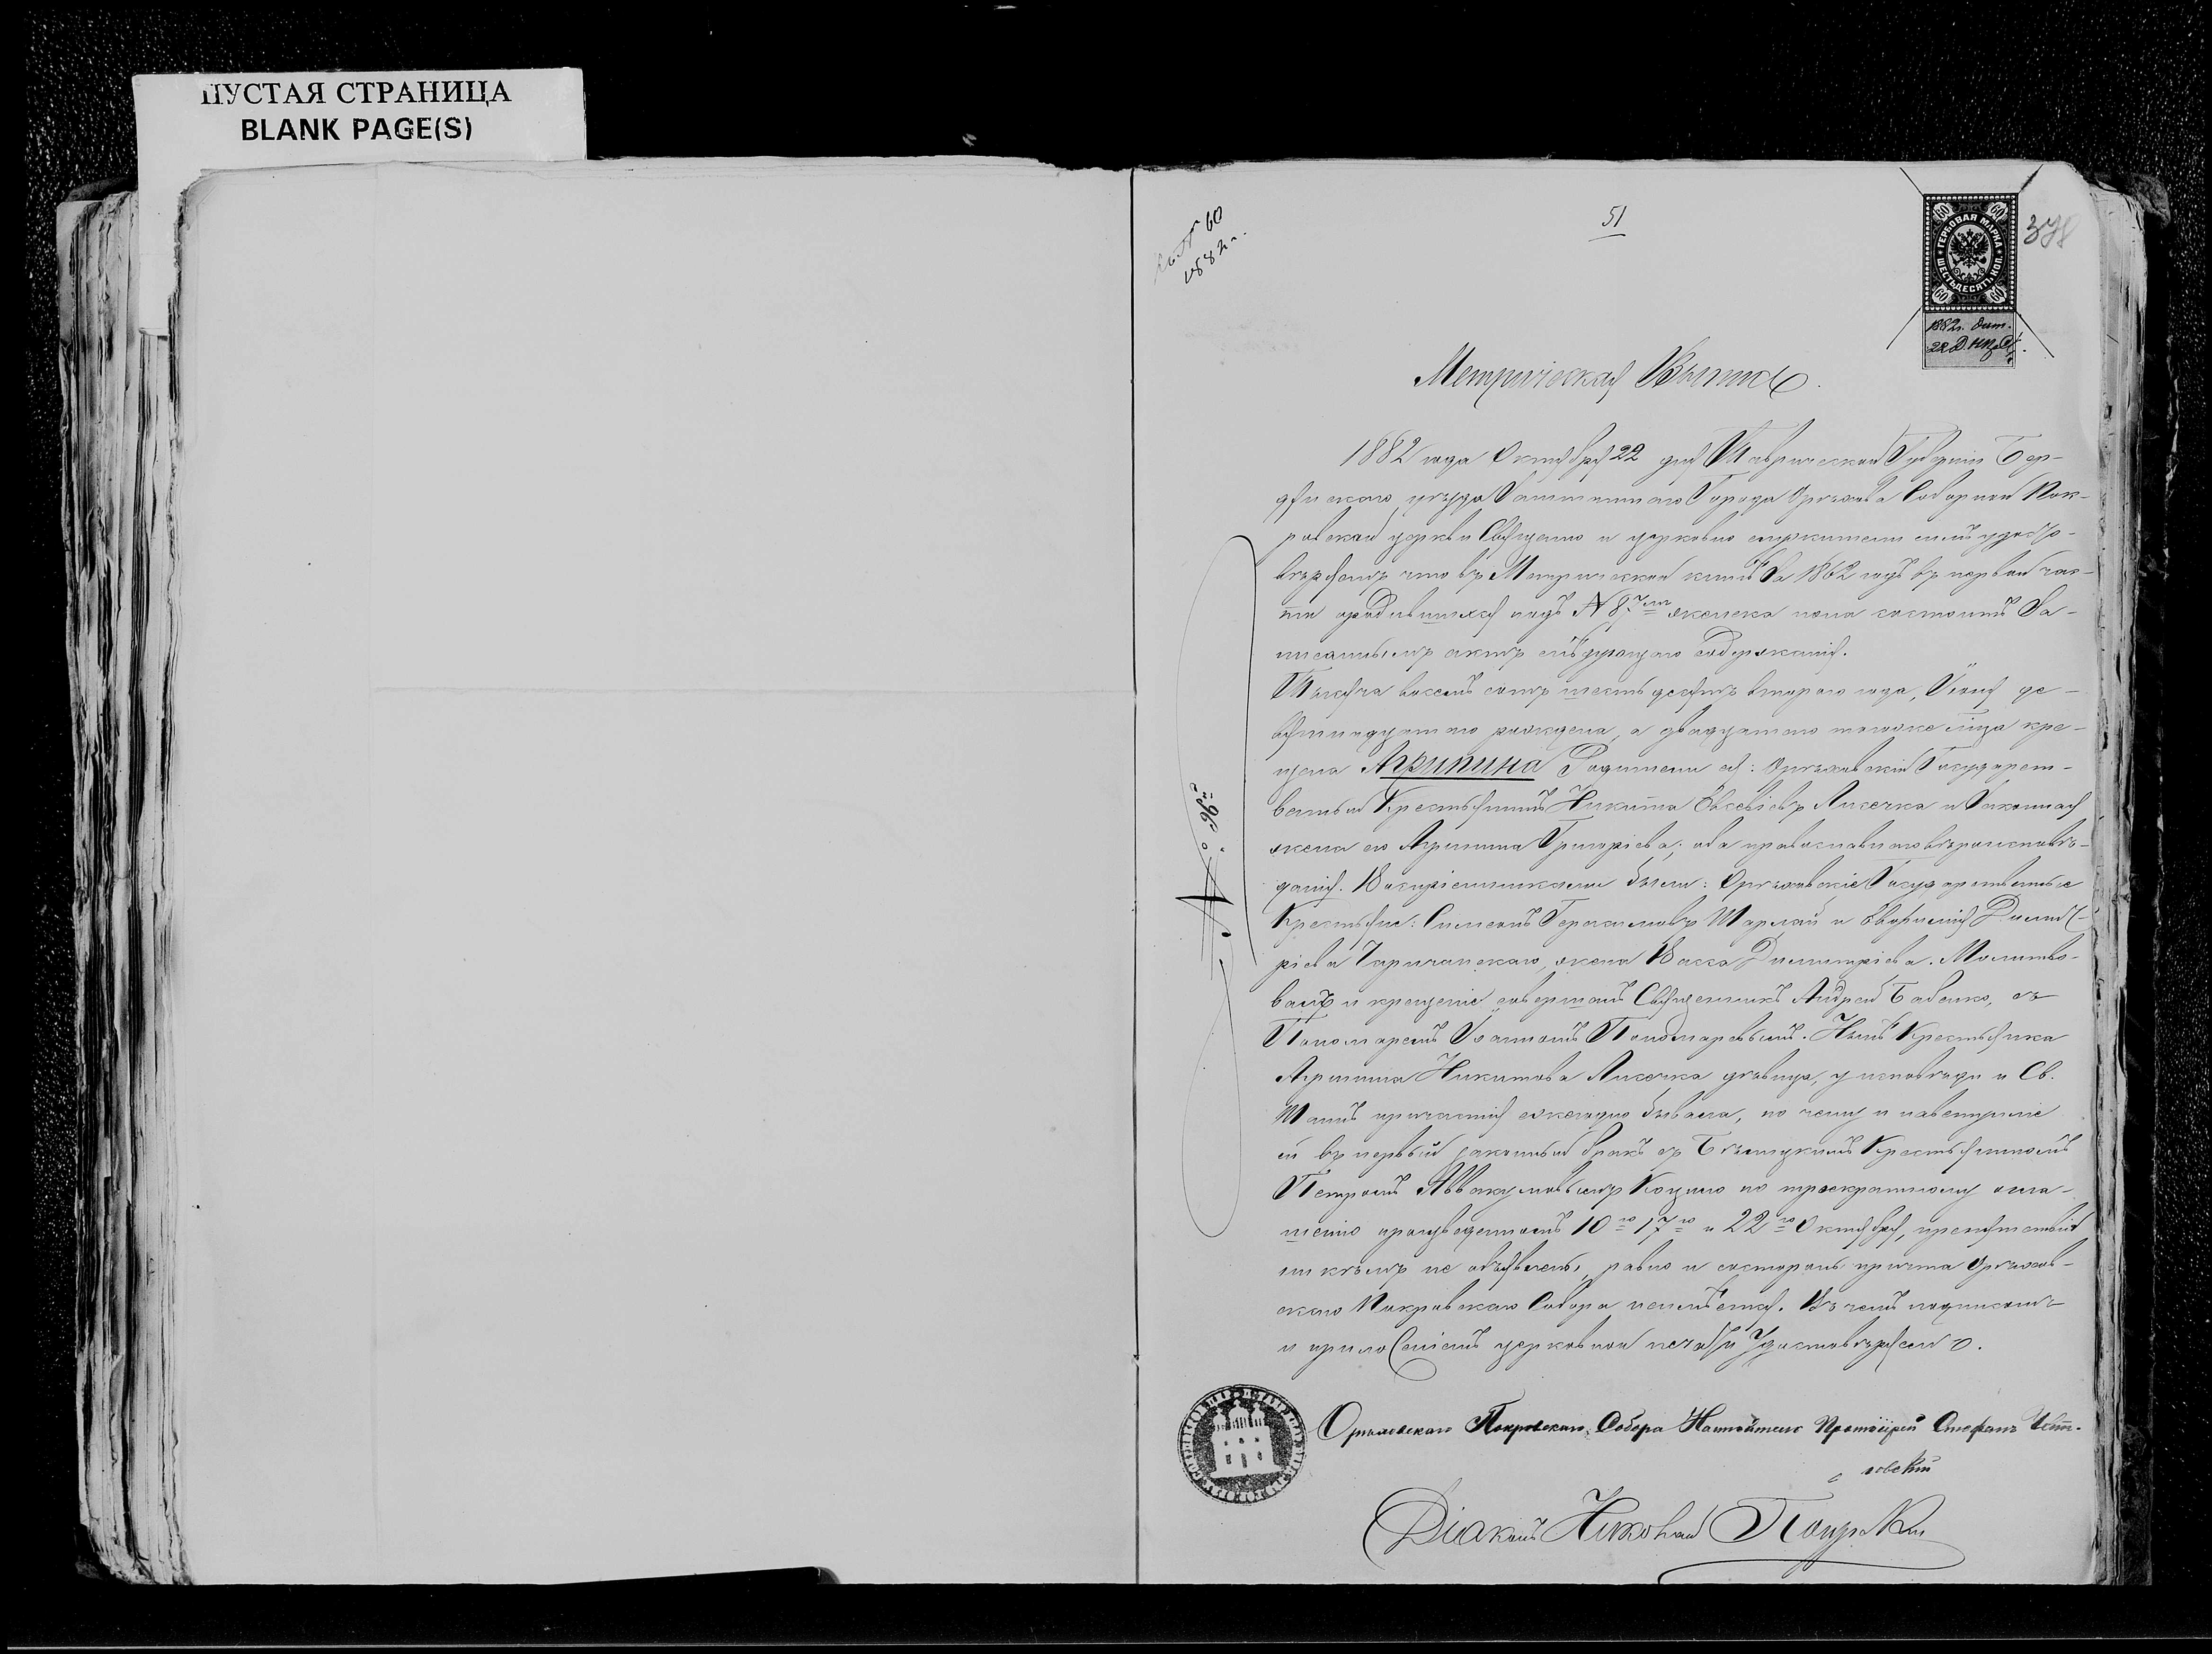 ПУСТАЯ СТРАНИЦА
BLANK PAGE(S)
къ № 60
1882 г.
51
378
60 60
ГЕРБОВАЯ МАРКА
ШЕСТЬДЕСЯТЪ КОП.
60 60
1882 г. Окт.
22 д.
Метрическая Выпись.
1882 года Октября 22 дня Таврической Губерніи Бер-
дянскаго уѣзда Заштатнаго Города Орѣхова Соборной Пок-
ровской церкви Священно и церковно служители симъ удосто-
вѣряемъ что въ Метрической книгѣ За 1862 годъ въ первой час-
ти о родившихся подъ № женска пола состоитъ За-
писаннымъ актъ слѣдующаго содержанія.
Тысяча восемь сотъ шестьдесятъ втораго года, Іюня де-
вятнадцатаго рождена, а двадцатаго тогоже м͠ца кре-
щена Агрипина Родители ея: Орѣховскій Государст-
венный Крестьянинъ Никита Евсевіевъ Лисечка и Законная
жена его Агрипина Григоріева; оба православнаго вѣроисповѣ-
данія. Воспріемниками были: Орѣховскіе Государственные
Крестьяне: Симеонъ Герасимовъ Шарлай и Евфимія Димит-
ріева жена Васса Димитріева. Молитво-
валъ и крещеніе совершалъ Священникъ Андрей Бабенко, съ
Пономаремъ Іоанномъ Пономаревымъ. Нынѣ Крестьянка
Агрипина Никитова Лисечка дѣвица, у исповѣди и Св.
Таинъ причастія ежегодно бывала, по чему и на вступленіе
ей въ первый законный бракъ съ Крестьяниномъ
Петромъ Аввакумовымъ Коцило по троекратному огла-
шенію произведенномъ 10го 17го и 22го Октября, препятствій
ни кѣмъ не объявлено, равно и со стороны причта Орѣхов-
скаго Покровскаго Собора не имѣется. Въ чемъ подписомъ
и приложеніемъ церковной печати Удостовѣряемъ.
№ 96й
Орѣховскаго Покровскаго Собора Настоятель Протоіерей Стефанъ
Діаконъ Николай